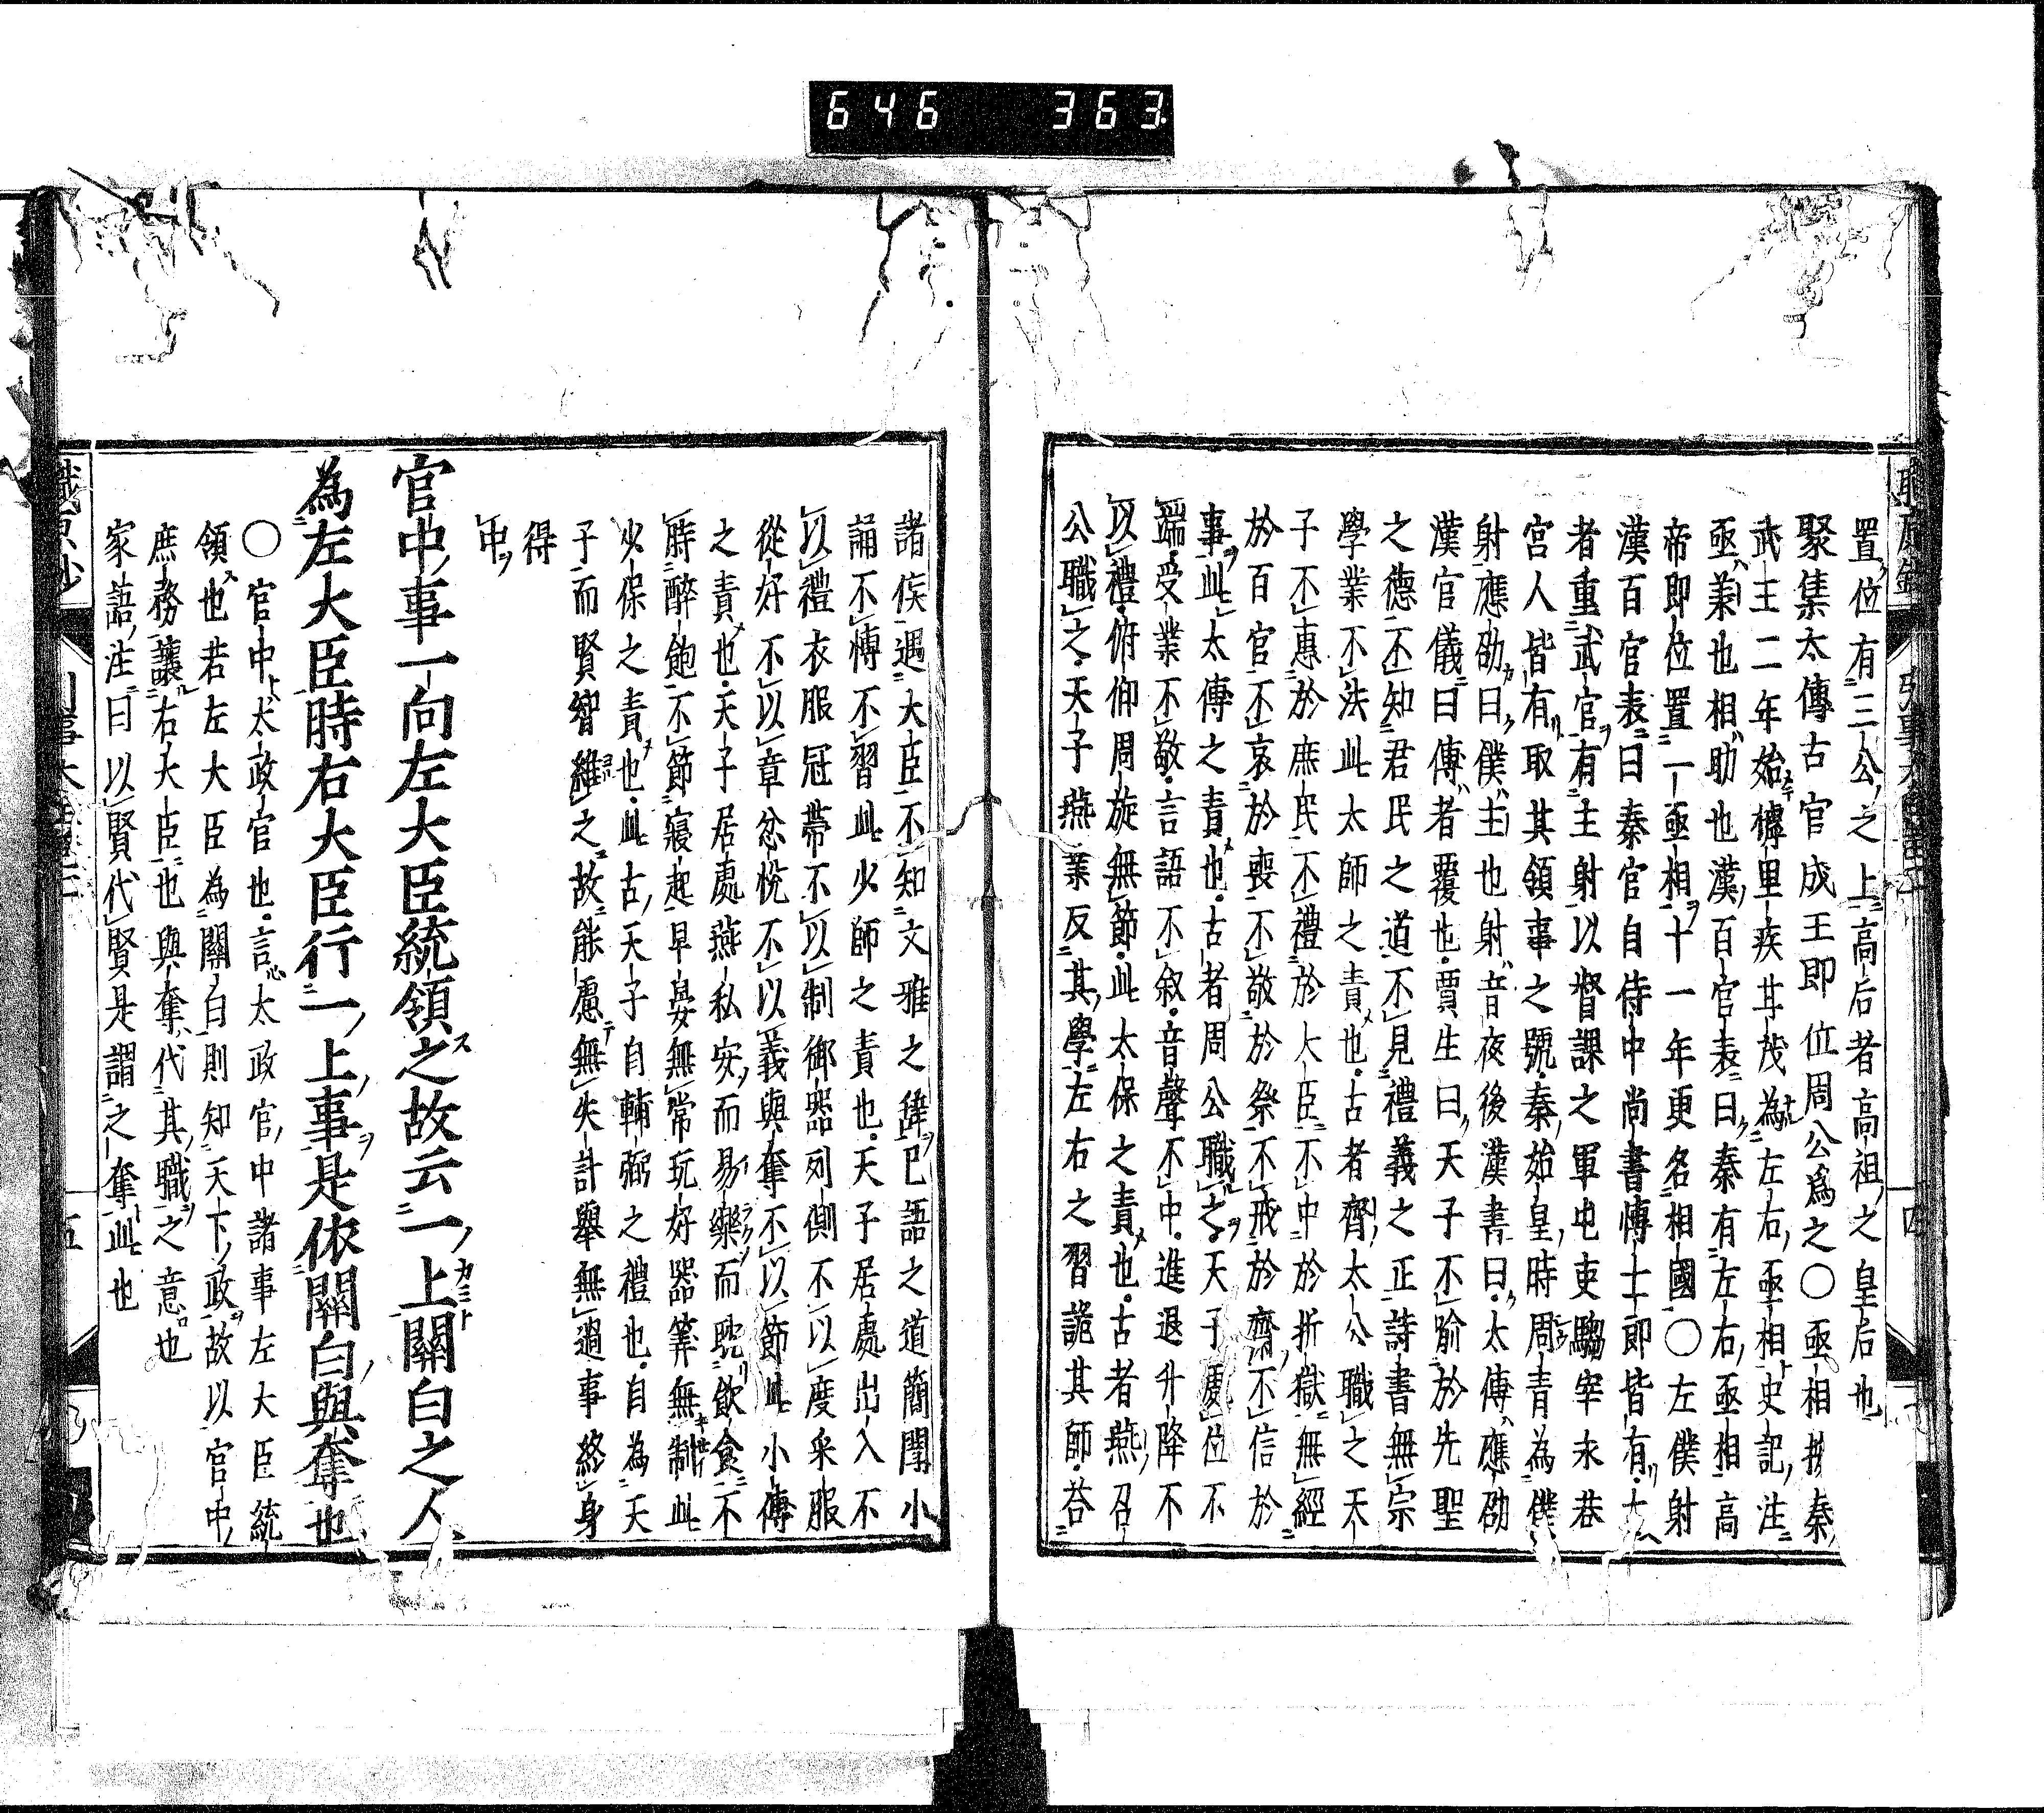 646 363
置位有三公之上高后者高祖之皇后也
聚集太傅古官成王即位周公爲之〇亟相秦
武王二年始樗里疾其茂為左右亟相史記注
亟兼也相助也漢百官表曰秦有左右亟相高
帝即位置一亟相十一年更名相國〇左僕射
漢百官表曰秦官自侍中尚書博士郎皆有
者重武官有主射以督課之軍屯吏騶宰永巷
宮人皆有取其領事之號秦始皇時周青為僕
射應劭曰僕主也射音夜後漢書曰太傅應劭
漢官儀曰傅者覆也賈生曰天子不喻於先聖
之德不知君民之道不見禮義之正詩書無宗
學業不法此太師之責也古者齊太公職之天
子不惠於庶民不禮於大臣不中於折獄無經
於百官不哀於喪不敬於祭不戒於齊不信於
事此太傅之責也古者周公職之天子處位不
端受業不敬言語不叙音聲不中進退升降不
以禮俯仰周旋無節此太保之責也古者燕召
公職之天子燕業反其學左右之習詭其師荅
諸侯遇大臣不知文雅之辞已語之道簡聞小
誦不博不習此少師之責也天子居處出入不
以禮衣服冠帶不以制御器列側不以度采服
從好不以章忿悅不以義與奪不以節此小傅
之責也天子居處燕私安而易樂而耽飲食不
時醉飽不節寢起早晏無常玩好器筭無制此
少保之責也此古天子自輔弼之禮也自為天
子而賢智維之故能慮無失計舉無過事終身
得
中
官中事一向左大臣統領之故云一上關白之人
為左大臣時右大臣行一上事是依關白與奪也
〇官中太政官也言太政官中諸事左大臣統
領也若左大臣為關白則知天下政故以官中
庶務讓右大臣也與奪代其職之意也
家語注曰以賢代賢是謂之奪此也